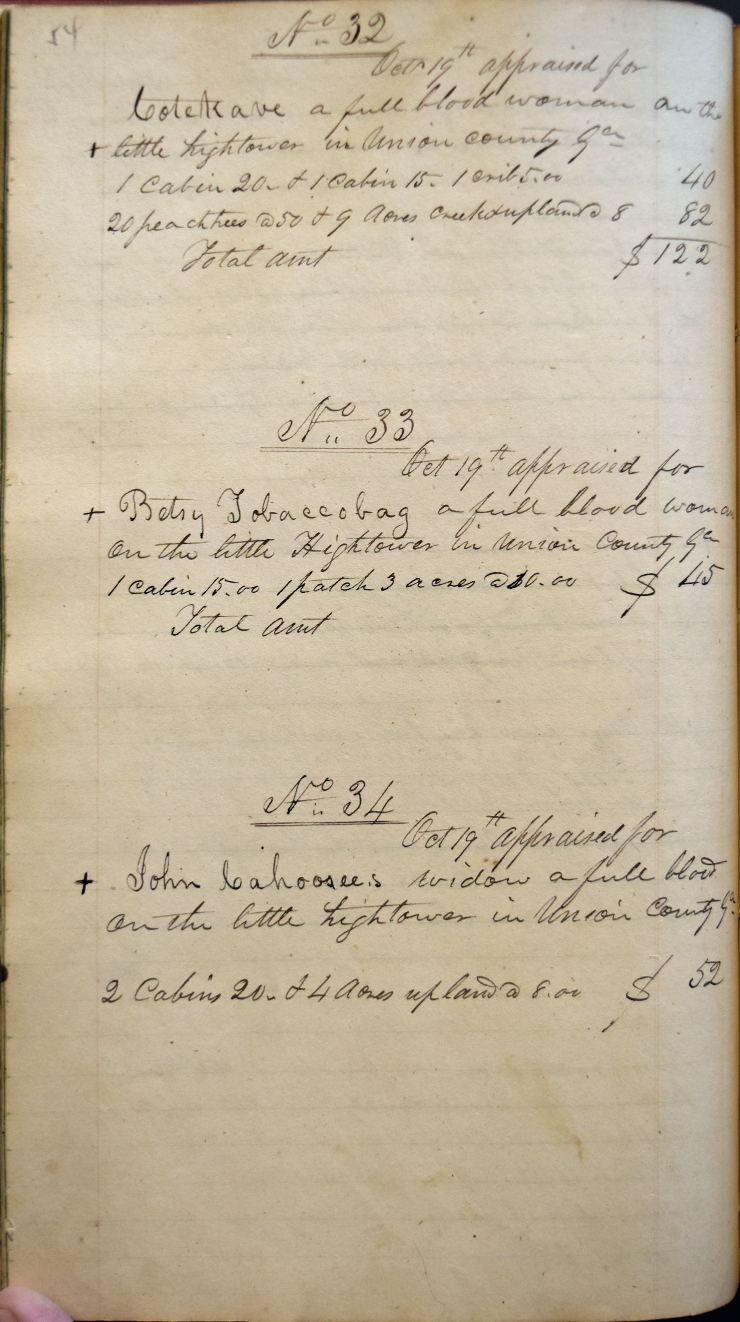 54
No 32
Oct 19th appraised for
Cotekave a full blood woman on the
+ little hightower in Union county Ga
1 Cabin 20- & 1 Cabin 15- 1 crib 5.00 40
20 peachtrees @ 50 & 9 Acres creek & upland @ 8 82
Total amt $122
No 33
Oct 19th appraised for
+ Betsy Tobaccobag a full blood woman
on the little Hightower in Union County Ga
1 cabin 15.00 1 patch 3 acres @ 10.00 $ 45
Total amt
No 34
Oct 19th appraised for
+ John Cahoosee's widow a full blood
on the little hightower in Union County Ga
2 Cabins 20- & 4 Acres upland @ 8.00 $ 52